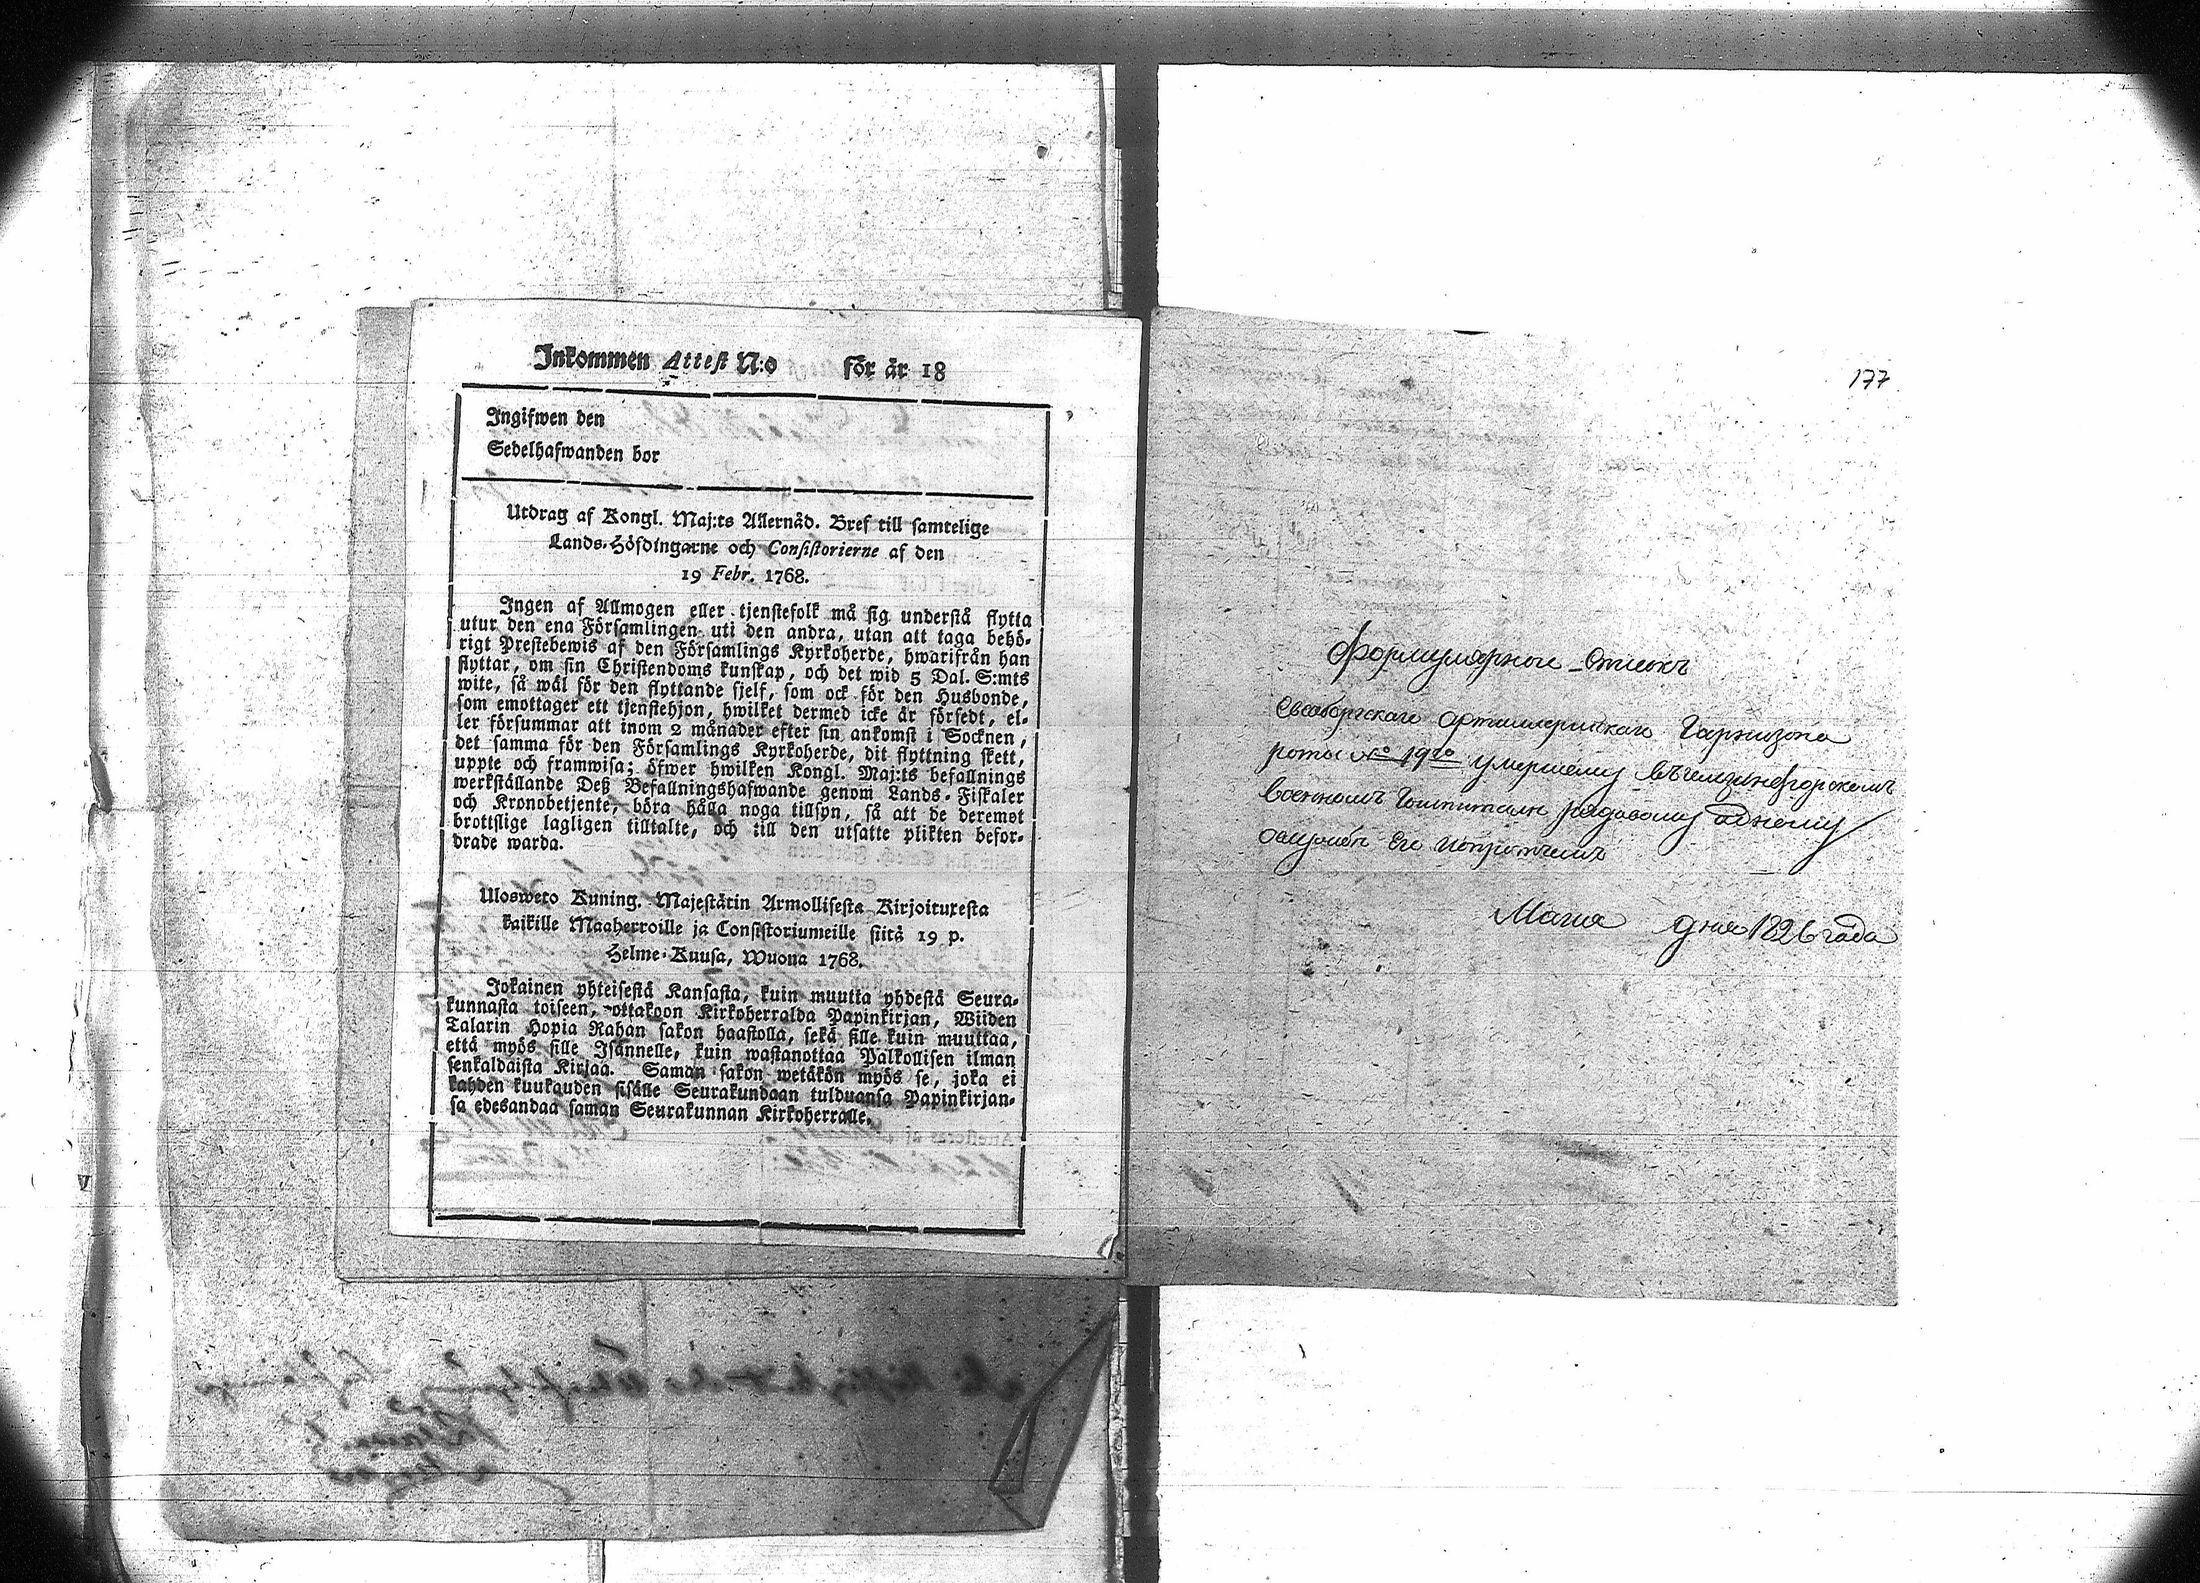 Inkommen Attest N:o för år 18
Ingifwen den
Sedelhafwanden bor
Utdrag af Kongl. Maj:ts Allernåd. Bref till samtelige
Lands-Höfdingarne och Consistorierne af den
19 Febr. 1768.
Ingen af Allmogen eller tjenstefolk må sig understå flytta
utur den ena Församlingen uti den andra, utan att taga behö-
rigt Prestebewis af den Församlings Kyrkoherde, hwarifrån han
flyttar, om sin Christendoms kunskap, och det wid 5 Dal. S:mts
wite, så wäl för den flyttande sjelf, som ock för den Husbonde,
som emottager ett tjenstehjon, hwilket dermed icke är försedt, el-
ler försummar att inom 2 månader efter sin ankomst i Socknen,
det samma för den Församlings Kyrkoherde, dit flyttning skett,
uppte och framwisa; öfwer hwilken Kongl. Maj:ts befallnings
werkställande Deß Befallningshafwande genom Lands-Fiskaler
och Kronobetjente, böra hålla noga tillsyn, så att de deremot
brottslige lagligen tilltalte, och till den utsatte plikten befor-
drade warda.
Ulosweto Kuning. Majestätin Armollisesta Kirjoituxesta
kaikille Maaherroille ja Consistoriumeille siitä 19 p.
Helme-Kuusa, Wuona 1768.
Jokainen yhteisestä Kansasta, kuin muutta yhdestä Seura-
kunnasta toiseen, ottakoon Kirkoherralda Papinkirjan, Wiiden
Talarin Hopia Rahan sakon haastolla, sekä sille kuin muuttaa,
että myös sille Isännelle, kuin wastanottaa Palkollisen ilman
senkaldaista Kirjaa. Saman sakon wetäkön myös se, joka ei
kahden kuukauden sisälle Seurakundaan tulduansa Papinkirjan-
sa edesandaa saman Seurakunnan Kirkoherralle.
177
Формулярной Списокъ
Свеаборгскаго артиллерійскаго Гарнизона
роты № 19го умершему въ гельзингфорскомъ
военномъ Гошпитали рядовому одному
Маия дня 1826 года